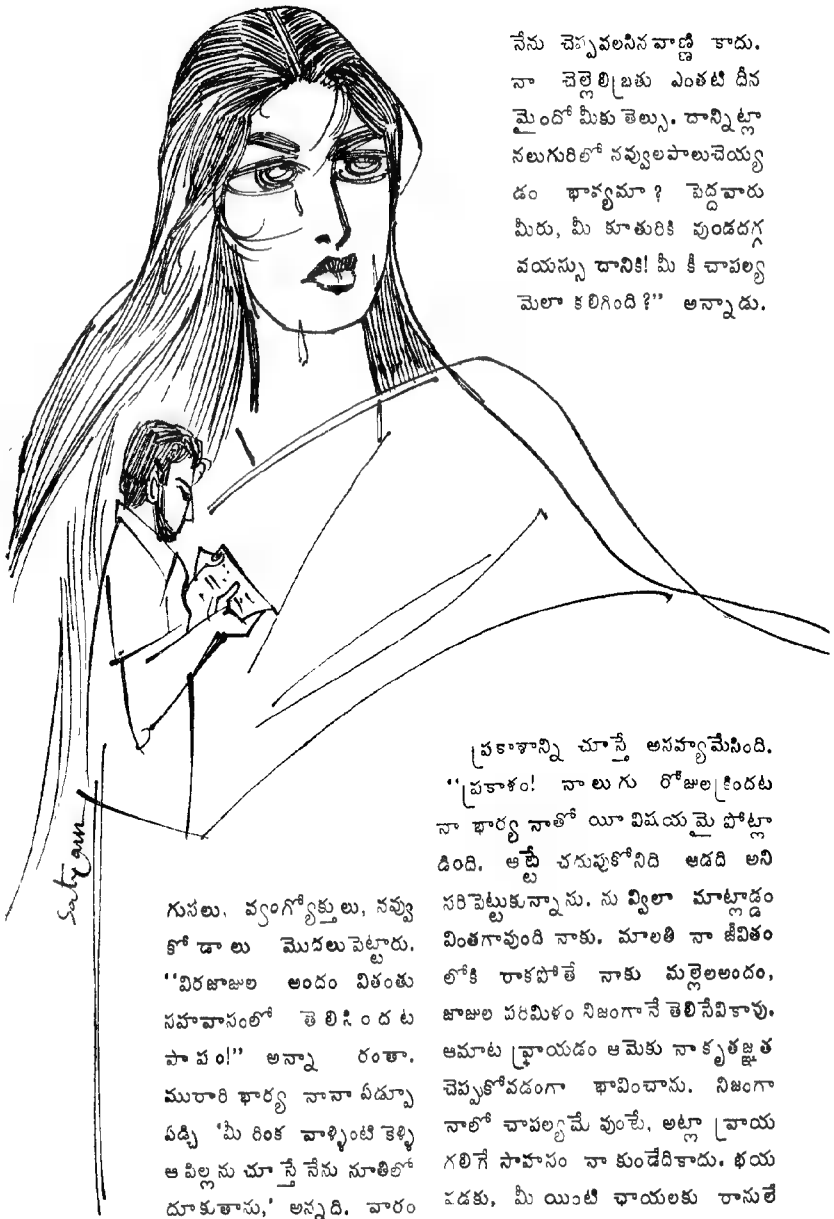 నేను చెప్పవలసినవాణ్ణి కాదు.
నా చెల్లెలిబ్రతు ఎంతటి దీన
మైందో మీకు తెల్సు. దాన్నిట్లా
నలుగురిలో నవ్వులపాలుచెయ్య
డం భావ్యమా? పెద్దవారు
మీరు, మీ కూతురికి వుండదగ్గ
వయస్సు దానికి! మీ కీ చాపల్య
మెలా కలిగింది?" అన్నాడు.
గుసలు, వ్యంగ్యోక్తులు, నవ్వు
కోడాలు మొదలుపెట్టారు.
"విరజాజుల అందం వితంతు
సహవాసంలో తెలిసిందట
పాపం!" అన్నా రంతా.
మురారి భార్య నానా ఏడ్పూ
ఏడ్చి 'మీ రింక వాళ్ళింటి కెళ్ళి
ఆ పిల్లను చూస్తే నేను నూతిలో
దూకుతాను,' అన్నది. వారం
ప్రకాశాన్ని చూస్తే అసహ్యమేసింది.
"ప్రకాశం! నాలుగు రోజులక్రిందట
నా భార్య నాతో యీ విషయమై పోట్లా
డింది. అట్టే చదువుకోనిది ఆడది అని
సరిపెట్టుకున్నాను. నువ్విలా మాట్లాడ్డం
వింతగావుంది నాకు. మాలతి నా జీవితం
లోకి రాకపోతే నాకు మల్లెలఅందం,
జాజుల పరిమిళం నిజంగానే తెలిసేవికావు.
ఆమాట వ్రాయడం ఆమెకు నా కృతజ్ఞత
చెప్పుకోవడంగా భావించాను. నిజంగా
నాలో చాపల్యమే వుంటే, అట్లా వ్రాయ
గలిగే సాహసం నా కుండేదికాదు. భయ
పడకు, మీ యింటి ఛాయలకు రానులే